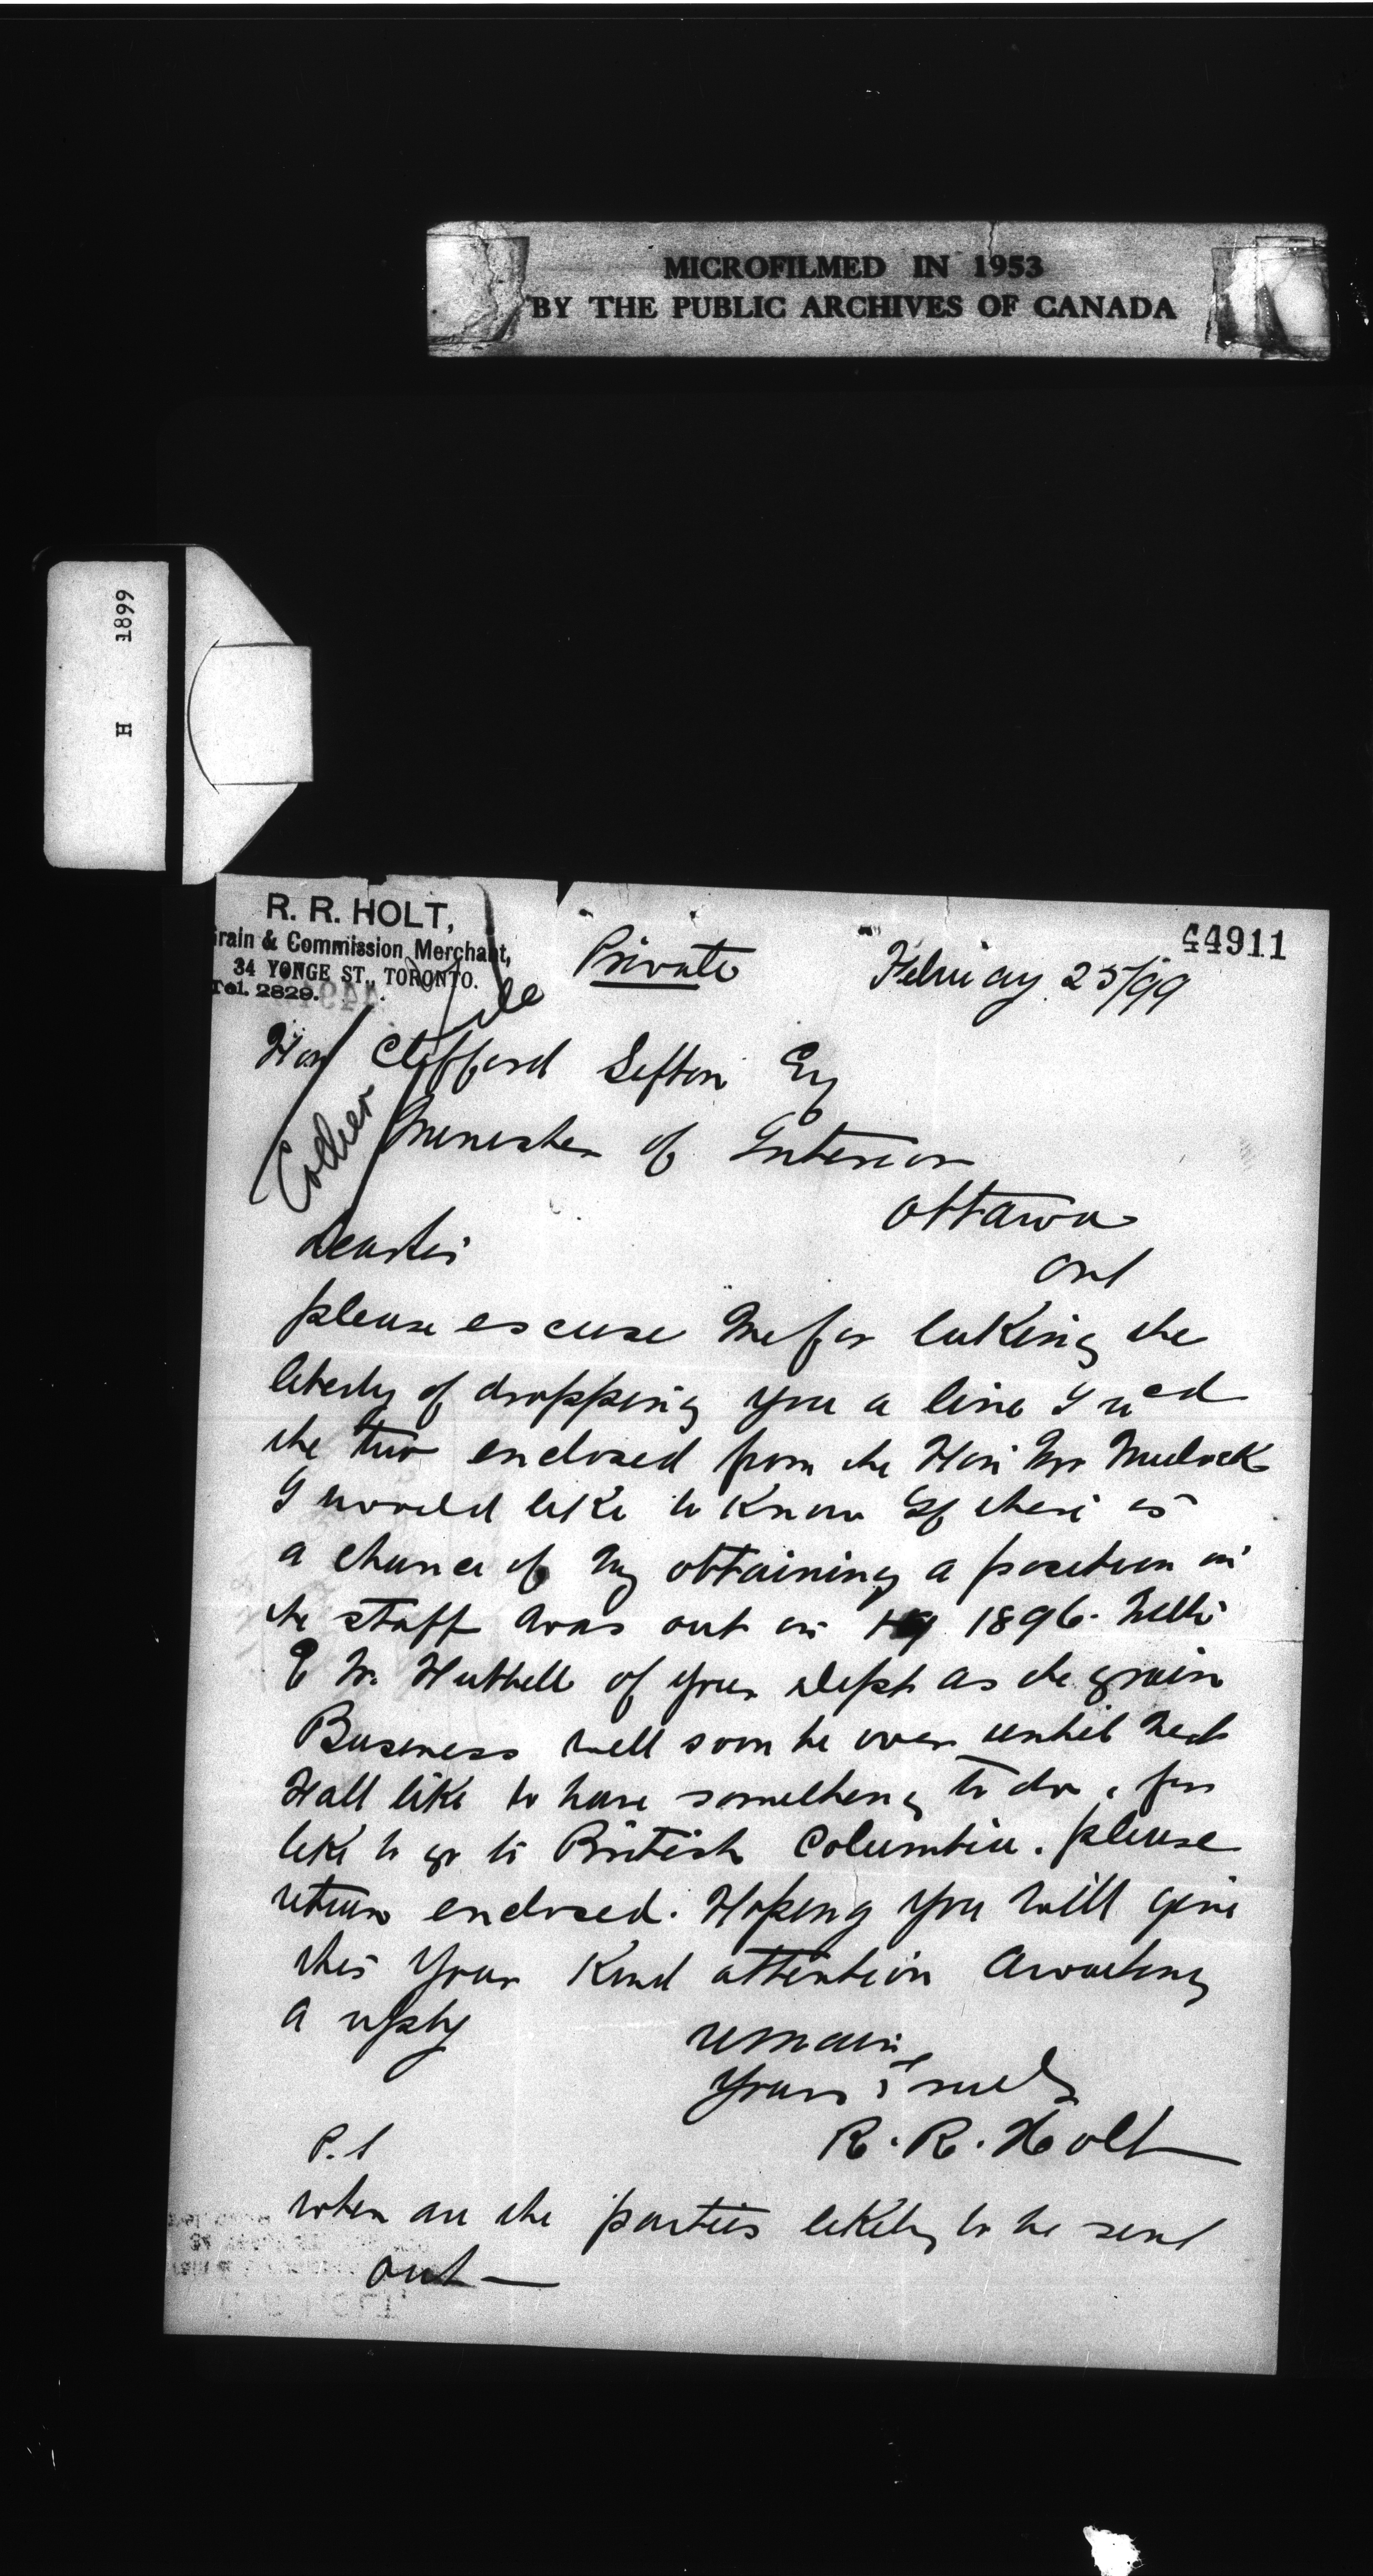 MICROFILMED IN 1953
BY THE PUBLIC ARCHIVES OF CANADA
H 1899
44911
R. R. HOLT,
Grain & Commission Merchant,
34 YONGE ST., TORONTO.
Tel. 2829.
Private
February 25/99
Hon Clifford Sifton Esq
Minister of Interior
Ottawa
Ont
Dear Sir
please escuse Me for taking the
liberty of dropping you a line I rcd
the two enclosed from the Hon Mr Mulock
I would like to know If there is
a chance of My obtaining a position on
the staff Was out in 1896. With
E W. Hubbell of your dept as the grain
Business will soon be over until Next
Fall like to have something to do,
like to go to British Columbia. please
return enclosed. Hoping You Will give
this Your Kind attention Awaiting
A reply
remain
Yours Truly
R. R. Holt
P.S
When are the parties likely to be sent
out —